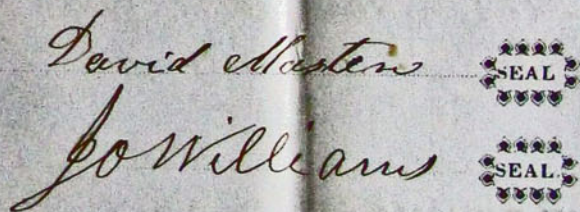 David Masten SEAL
Jo Williams SEAL.